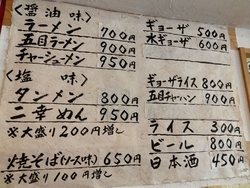 醤油味
ラーメン 700円
五目ラーメン 900円
チャーシューメン 950円
塩味
タンメン 800円
二幸めん 950円
※大盛り200円増し
焼そば(ソース味) 650円
※大盛り100円増し
ギョーザ 500円
水ギョーザ 600円
ギョーザライス 800円
五目チャーハン 900円
ライス 300円
ビール 800円
日本酒 450円